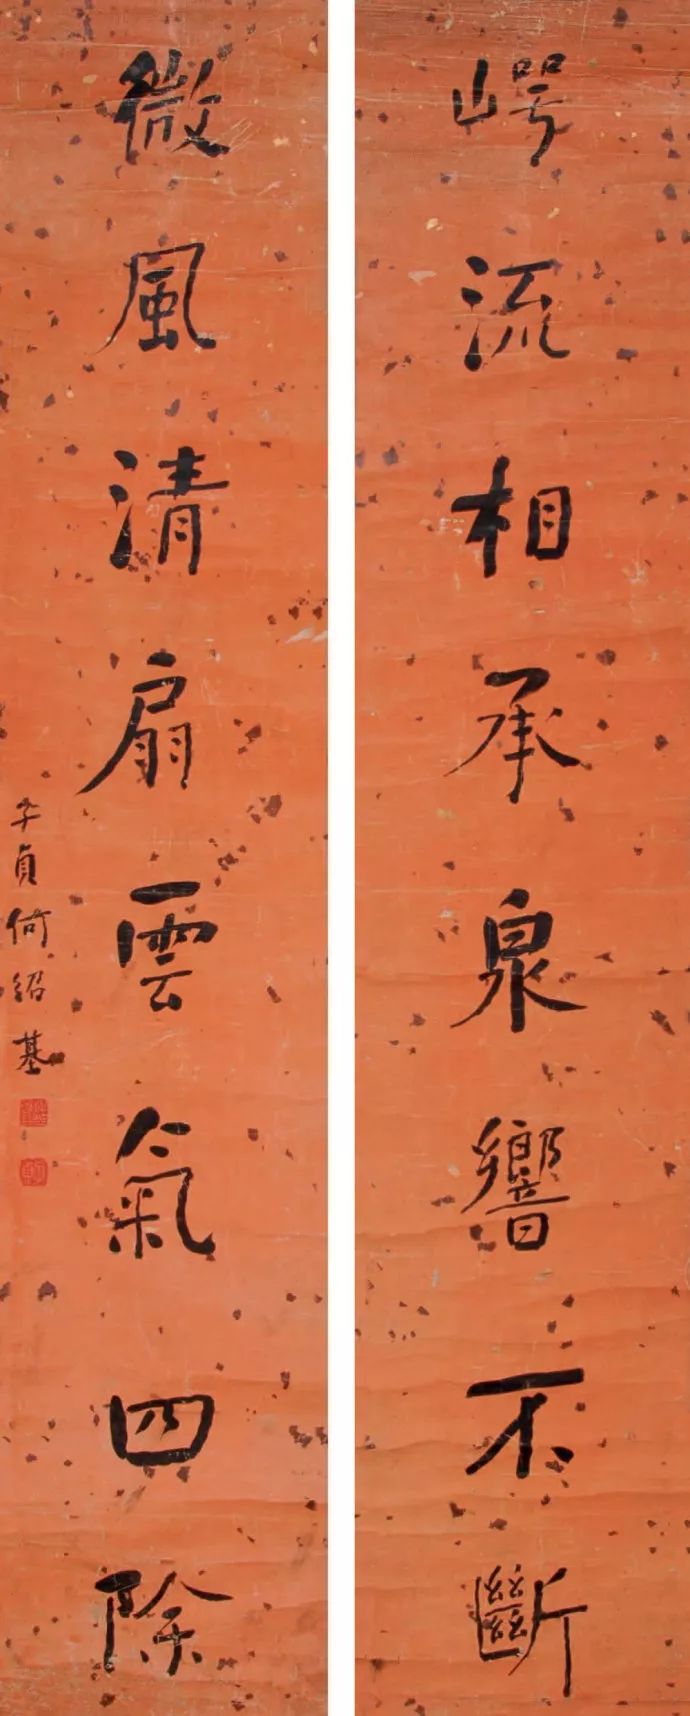 崿流相承泉響不斷
微風清扇雲氣四除
子貞何紹基